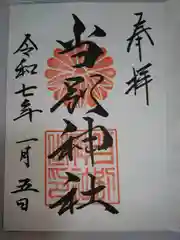 奉拝
当所神社
令和七年一月五日